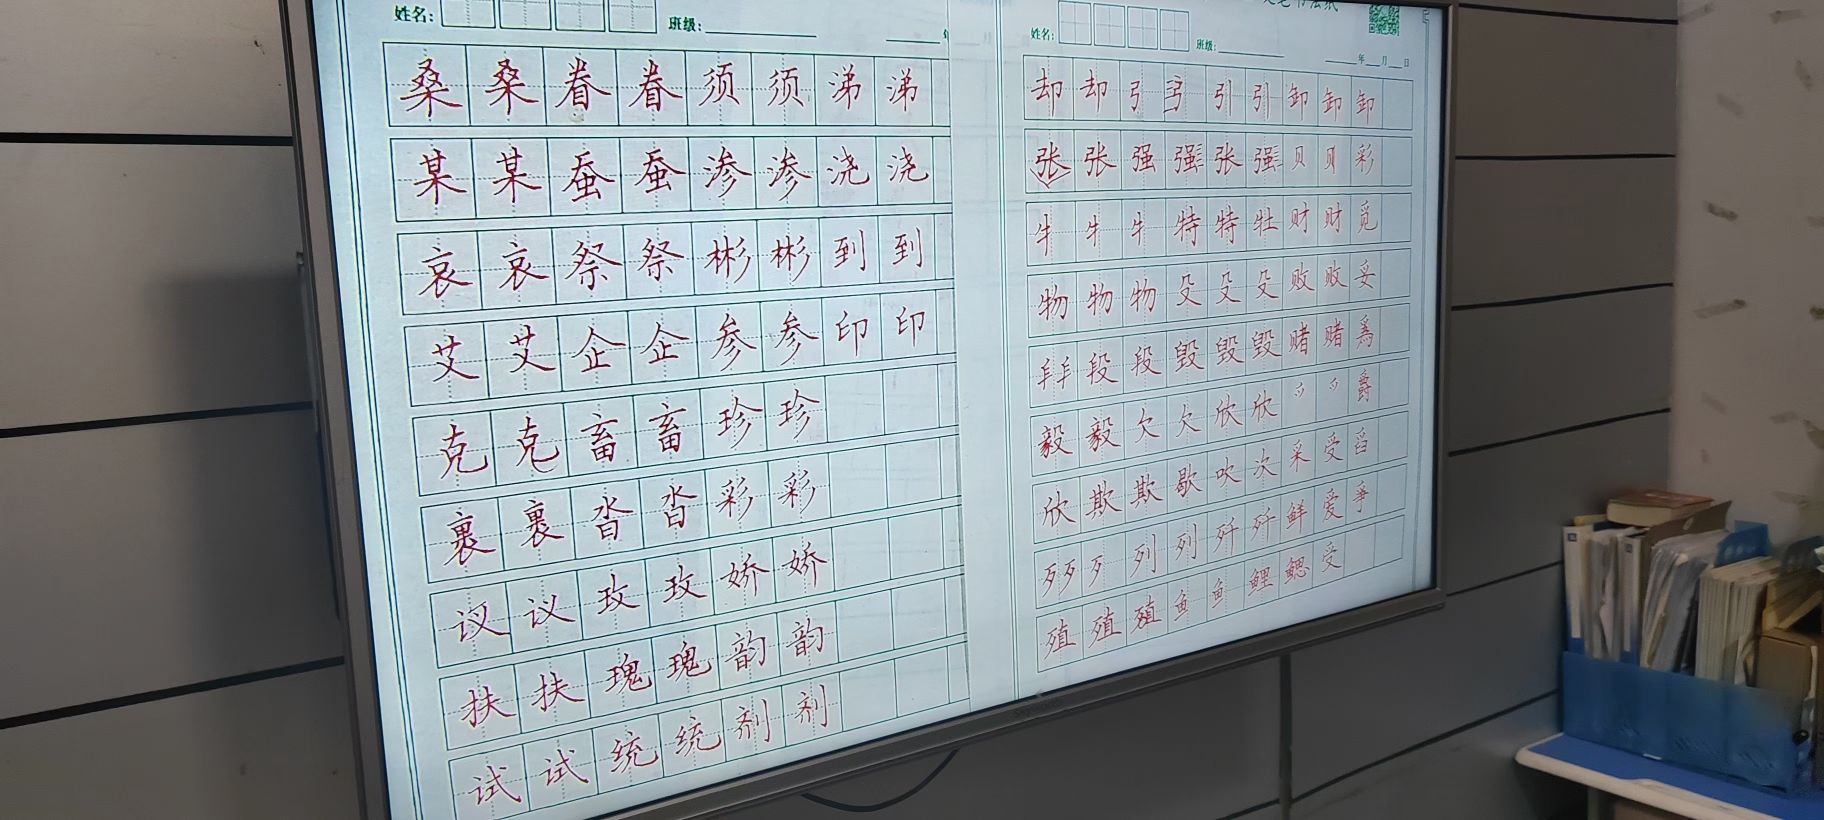 姓名:
班级:
年
桑桑眷眷须须涕涕
某某蚕蚕渗渗浇浇
哀哀祭祭彬彬到到
艾艾企企参参印印
克克畜畜珍珍
裹裹沓沓彩彩
议议玫玫娇娇
扶扶瑰瑰韵韵
试试统统剂剂
姓名:
班级:
年 月 日
却却引引引卸卸卸
张张强强张强贝贝彩
牛牛牛特特牡财财觅
物物物殳殳殳败败妥
段段毁毁毁赌赌爲
毅毅欠欠欣欣爵
欣欺欺歇吹次采受舀
歹列列歼歼鲜爱爭
殖殖殖鱼鱼鲤鳃受